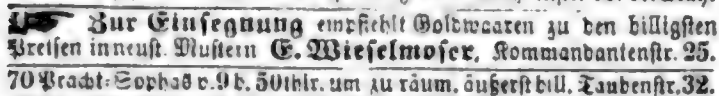 ☛ Zur Einsegnung empfiehlt Goldwaaren zu den billigsten
Preisen in neust. Mustern E. Wieselmoser, Kommandantenstr. 25.
70 Pracht-Sophas v. 9 b. 50 thlr. um zu räum. äußerst bill. Taubenstr. 32.